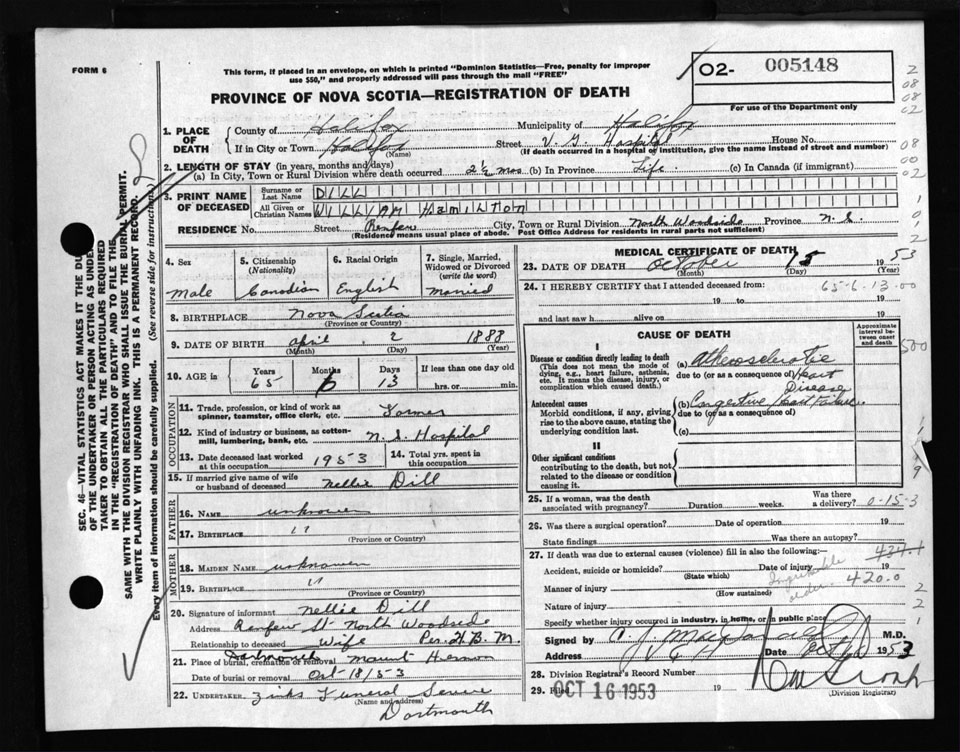 FORM 6
This form, if placed in an envelope, on which is printed "Dominion Statistics—Free, penalty for improper
use $50," and properly addressed will pass through the mail "FREE"
O2- 005148
PROVINCE OF NOVA SCOTIA—REGISTRATION OF DEATH
For use of the Department only
2
08
08
02
08
00
02
1
0
1
2
1. PLACE OF DEATH
County of Halifax Municipality of Halifax
If in City or Town Halifax (Name) Street V. G. Hospital House No.
(If death occurred in a hospital or institution, give the name instead of street and number)
2. LENGTH OF STAY (in years, months and days)
(a) In City, Town or Rural Division where death occurred 2½ mos (b) In Province Life (c) In Canada (if immigrant)
3. PRINT NAME OF DECEASED
Surname or Last Name DILL
All Given or Christian Names WILLIAM HAMILTON
RESIDENCE No. Street Renfew City, Town or Rural Division North Woodside Province N. S.
(Residence means usual place of abode. Post Office Address for residents in rural parts not sufficient)
4. Sex Male
5. Citizenship (Nationality) Canadian
6. Racial Origin English
7. Single, Married, Widowed or Divorced (write the word) Married
8. BIRTHPLACE Nova Scotia
(Province or Country)
9. DATE OF BIRTH April 2 1888
(Month) (Day) (Year)
10. AGE is Years 65 Months 6 Days 13 If less than one day old hrs. or min.
OCCUPATION
11. Trade, profession, or kind of work as spinner, teamster, office clerk, etc.
12. Kind of industry or business, as cotton-mill, lumbering, bank, etc. N. S. Hospital
13. Date deceased last worked at this occupation 1953
14. Total yrs. spent in this occupation
15. If married give name of wife or husband of deceased Nellie Dill
FATHER
16. NAME unknown
17. BIRTHPLACE "
(Province or Country)
MOTHER
18. MAIDEN NAME unknown
19. BIRTHPLACE "
(Province or Country)
20. Signature of informant Nellie Dill
Address Renfew St North Woodside
Relationship to deceased Wife Per. H. B. M.
21. Place of burial, cremation or removal Dartmouth Mount Hermon
Date of burial or removal Oct 18/53
22. UNDERTAKER Zinks Funeral Service
(Name and address)
Dartmouth
MEDICAL CERTIFICATE OF DEATH
23. DATE OF DEATH October 15 1953
(Day) (Year)
24. I HEREBY CERTIFY that I attended deceased from: 65-6-13-00
19 to 19
and last saw h alive on 19
CAUSE OF DEATH
Approximate interval between onset and death
500
I
Disease or condition directly leading to death
(This does not mean the mode of dying, e.g., heart failure, asthenia, etc. It means the disease, injury, or complication which caused death.)
(a) Atherosclerotic
due to (or as a consequence of) Heart Disease
Antecedent causes
Morbid conditions, if any, giving rise to the above cause, stating the underlying condition last.
(b) Congestive Heart Failure
due to (or as a consequence of)
(c)
II
Other significant conditions
contributing to the death, but not related to the disease or condition causing it.
25. If a woman, was the death associated with pregnancy? Duration weeks. Was there a delivery? 0-15-3
26. Was there a surgical operation? Date of operation 19
State findings Was there an autopsy?
27. If death was due to external causes (violence) fill in also the following:— 434.1
Accident, suicide or homicide? Date of injury 19
(State which)
Manner of injury 420.0
(How sustained)
Nature of injury
Specify whether injury occurred in industry, in home, or in public place
Signed by M.D.
Address V G H Date Oct 1953
28. Division Registrar's Record Number
29. Filed OCT 16 1953 19
(Division Registrar)
2
2
1
SEC. 46—VITAL STATISTICS ACT MAKES IT THE DU
OF THE UNDERTAKER OR PERSON ACTING AS UNDER
TAKER TO OBTAIN ALL THE PARTICULARS REQUIRED
IN THE "REGISTRATION OF DEATH" AND TO FILE THE
SAME WITH THE DIVISION REGISTRAR WHO SHALL ISSUE THE BURIAL PERMIT.
WRITE PLAINLY WITH UNFADING INK. THIS IS A PERMANENT RECORD.
Every item of information should be carefully supplied. (See reverse side for instructions.)